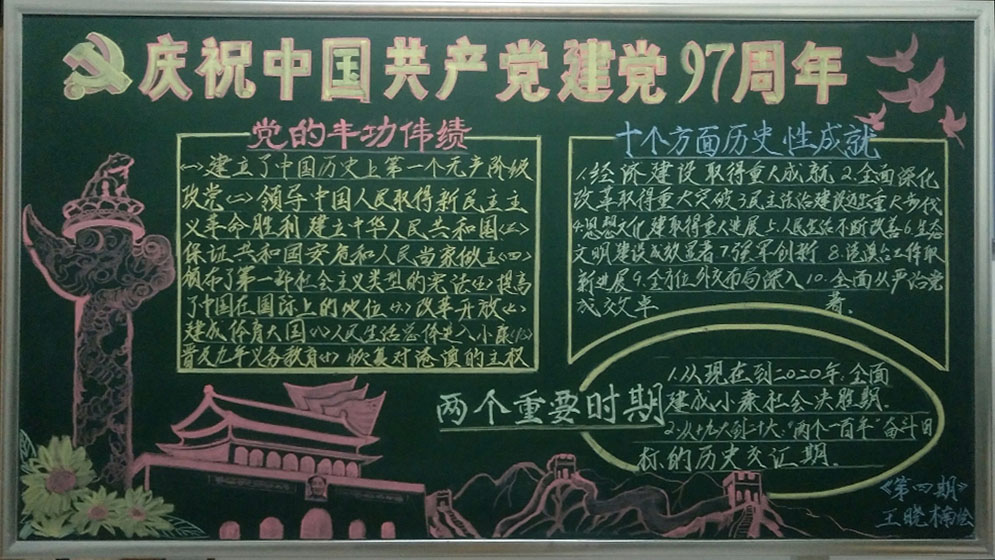 庆祝中国共产党建党97周年
党的丰功伟绩
㈠建立了中国历史上第一个无产阶级
政党㈡领导中国人民取得新民主主
义革命胜利建立中华人民共和国㈢
保证共和国安危和人民当家做主㈣
颁布了第一部社会主义类型的宪法㈤提高
了中国在国际上的地位㈥改革开放㈦
建成体育大国㈧人民生活总体进入小康㈨
普及九年义务教育㈩恢复对港澳的主权
十个方面历史性成就
1.经济建设取得重大成就2.全面深化
改革取得重大突破3民主法治建设迈出重大步伐
4.思想文化建设取得重大进展5人民生活不断改善6.生态
文明建设成效显著7.强军创新8.港澳台工作取
新进展9.全方位外交布局深入10.全面从严治党
成效卓著.
两个重要时期
1.从现在到2020年.全面
建成小康社会决胜期.
2.从十九大到二十大."两个一百年"奋斗目
标的历史交汇期.
《第四期》
王晓楠绘